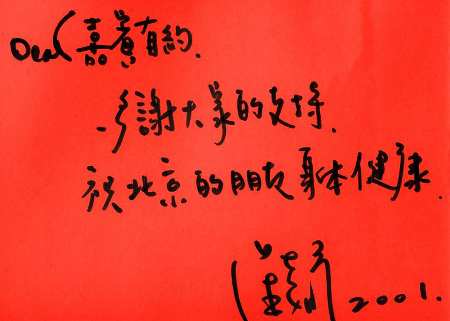 Dear 嘉賓有約.
多謝大家的支持.
祝北京的朋友身体健康.
2001.